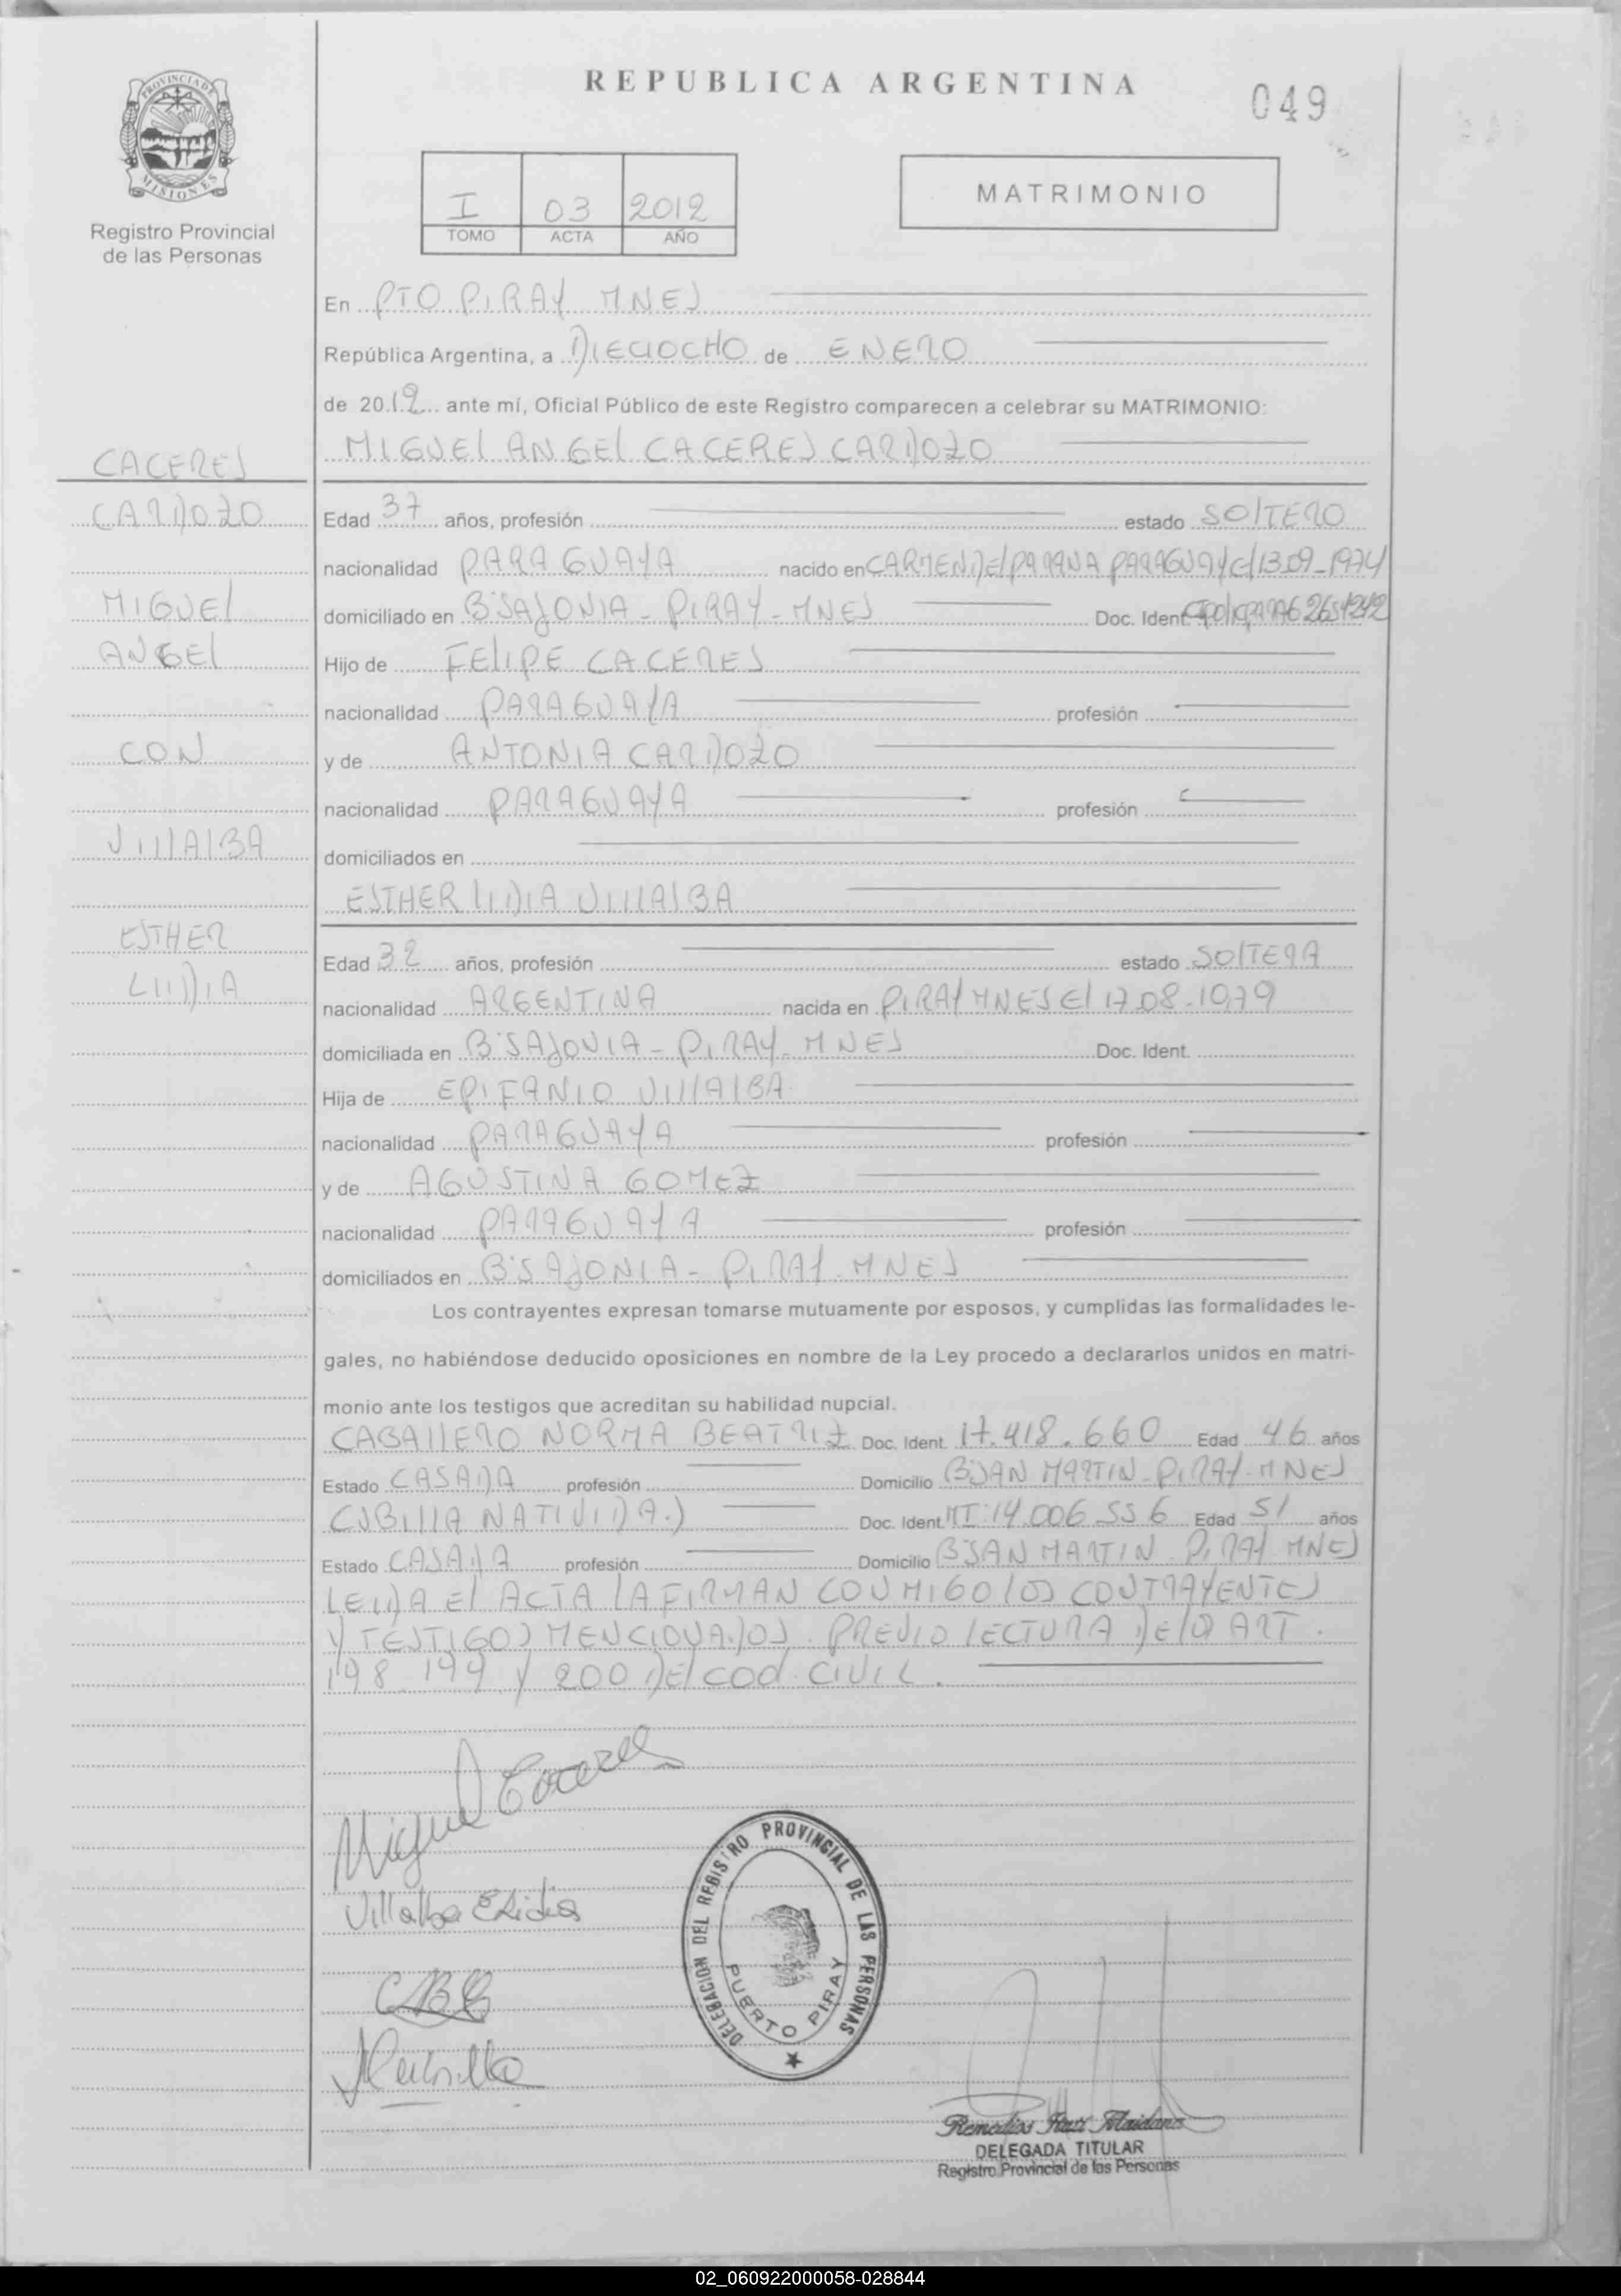 REPUBLICA ARGENTINA
049
PROVINCIA DE MISIONES
Registro Provincial
de las Personas
I 03 2012
TOMO ACTA AÑO
MATRIMONIO
En PTO PIRAY MNES
República Argentina, a DIECIOCHO de ENERO
de 2012 ante mí, Oficial Público de este Registro comparecen a celebrar su MATRIMONIO:
MIGUEL ANGEL CACERES CARDOZO
CACERES
CARDOZO
MIGUEL
ANGEL
CON
VILLALBA
ESTHER
LIDIA
Edad 37 años, profesión estado SOLTERO
nacionalidad PARAGUAYA nacido en CARMEN DEL PARANA PARAGUAY el 13.09-1974
domiciliado en B: SAJONIA - PIRAY - MNES Doc. Ident.
Hijo de FELIPE CACERES
nacionalidad PARAGUAYA profesión
y de ANTONIA CARDOZO
nacionalidad PARAGUAYA profesión
domiciliados en
ESTHER LIDIA VILLALBA
Edad 32 años, profesión estado SOLTERA
nacionalidad ARGENTINA nacida en PIRAY MNES El 17.08-1979
domiciliada en B: SAJONIA - PIRAY - MNES Doc. Ident.
Hija de EPIFANIO VILLALBA
nacionalidad PARAGUAYA profesión
y de AGUSTINA GOMEZ
nacionalidad PARAGUAYA profesión
domiciliados en B: SAJONIA - PIRAY - MNES
Los contrayentes expresan tomarse mutuamente por esposos, y cumplidas las formalidades le-
gales, no habiéndose deducido oposiciones en nombre de la Ley procedo a declararlos unidos en matri-
monio ante los testigos que acreditan su habilidad nupcial.
CABALLERO NORMA BEATRIZ Doc. Ident. 17.418.660 Edad 46 años
Estado CASADA profesión Domicilio B: SAN MARTIN - PIRAY - MNES
CUBILLA NATIVIDAD Doc. Ident. MI: 14.006.556 Edad 51 años
Estado CASADA profesión Domicilio B: SAN MARTIN PIRAY MNES
LEIDA El ACTA LA FIRMAN CONMIGO LOS CONTRAYENTES
Y TESTIGOS MENCIONADOS. PREVIO LECTURA DE LOS ART.
198 199 Y 200 DEL COD. CIVIL.
Miguel Caceres
Villalba E Lidia
CNB
NCubilla
DELEGACION DEL REGISTRO PROVINCIAL DE LAS PERSONAS
PUERTO PIRAY
Remedios Maidana
DELEGADA TITULAR
Registro Provincial de las Personas
02_060922000058-028844